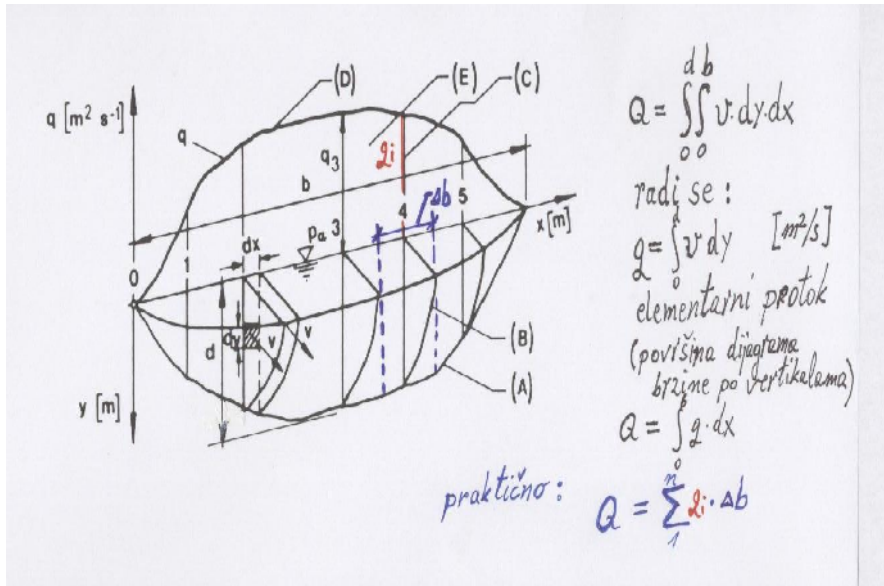 q [m² s⁻¹]
(D)
(E)
(C)
q
q₃
qi
b
Δb
x [m]
0
1
dx
pₐ
3
4
5
dy
d
v
v
(B)
(A)
y [m]
Q = ∫₀ᵈ∫₀ᵇ v·dy·dx
radi se :
q = ∫₀ᵈ v dy [m²/s]
elementarni protok
(površina dijagrama
brzine po vertikalama)
Q = ∫₀ᵇ q·dx
praktično : Q = ∑₁ⁿ qi·Δb